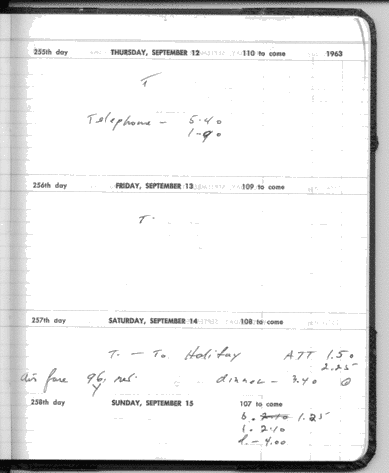 255th day THURSDAY, SEPTEMBER 12 110 to come 1963
T
Telephone - 5.40
1.90
256th day FRIDAY, SEPTEMBER 13 109 to come
T.
257th day SATURDAY, SEPTEMBER 14 108 to come
T. - To Halifax ATT 1.50
2.25
Air fare 96 dinner - 3.40
258th day SUNDAY, SEPTEMBER 15 107 to come
b. 1.25
l. 2.10
d. - 4.00